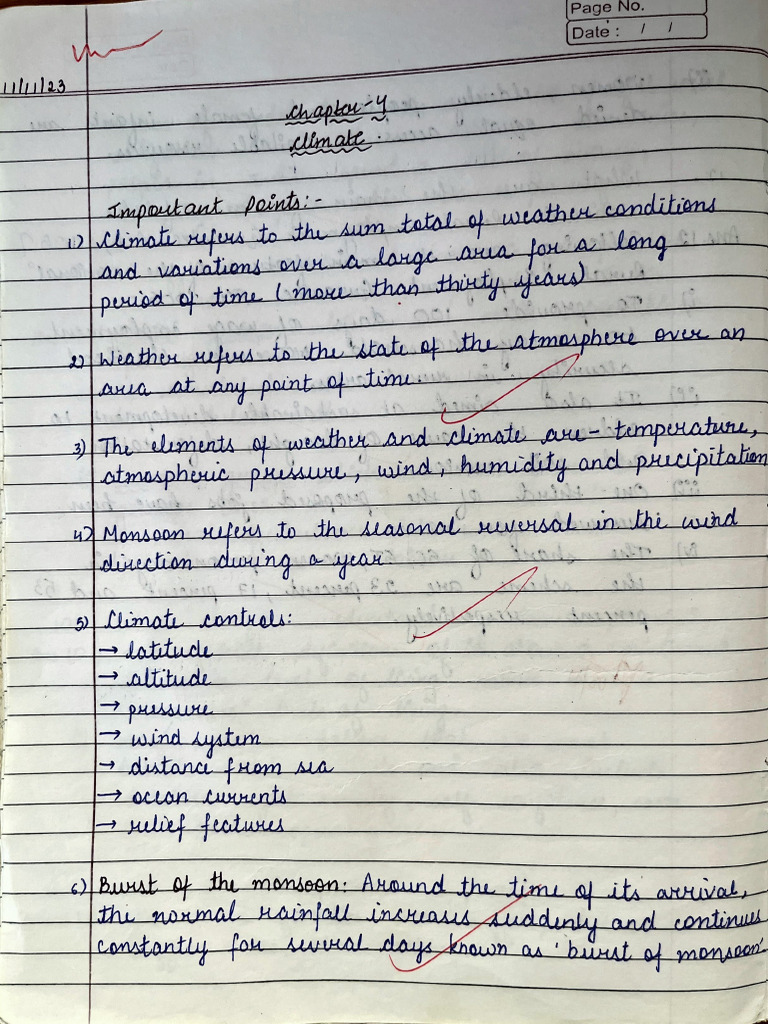 Page No.
Date : / /
11/11/23
Chapter-4
Climate.
Important Points:-
1) Climate refers to the sum total of weather conditions
and variations over a large area for a long
period of time (more than thirty years)
2) Weather refers to the state of the atmosphere over an
area at any point of time.
3) The elements of weather and climate are- temperature,
atmospheric pressure, wind, humidity and precipitation
4) Monsoon refers to the seasonal reversal in the wind
direction during a year
5) Climate controls:
→ latitude
→ altitude
→ pressure
→ wind system
→ distance from sea
→ ocean currents
→ relief features
6) Burst of the monsoon: Around the time of its arrival,
the normal rainfall increases suddenly and continues
constantly for several days known as 'burst of monsoon'